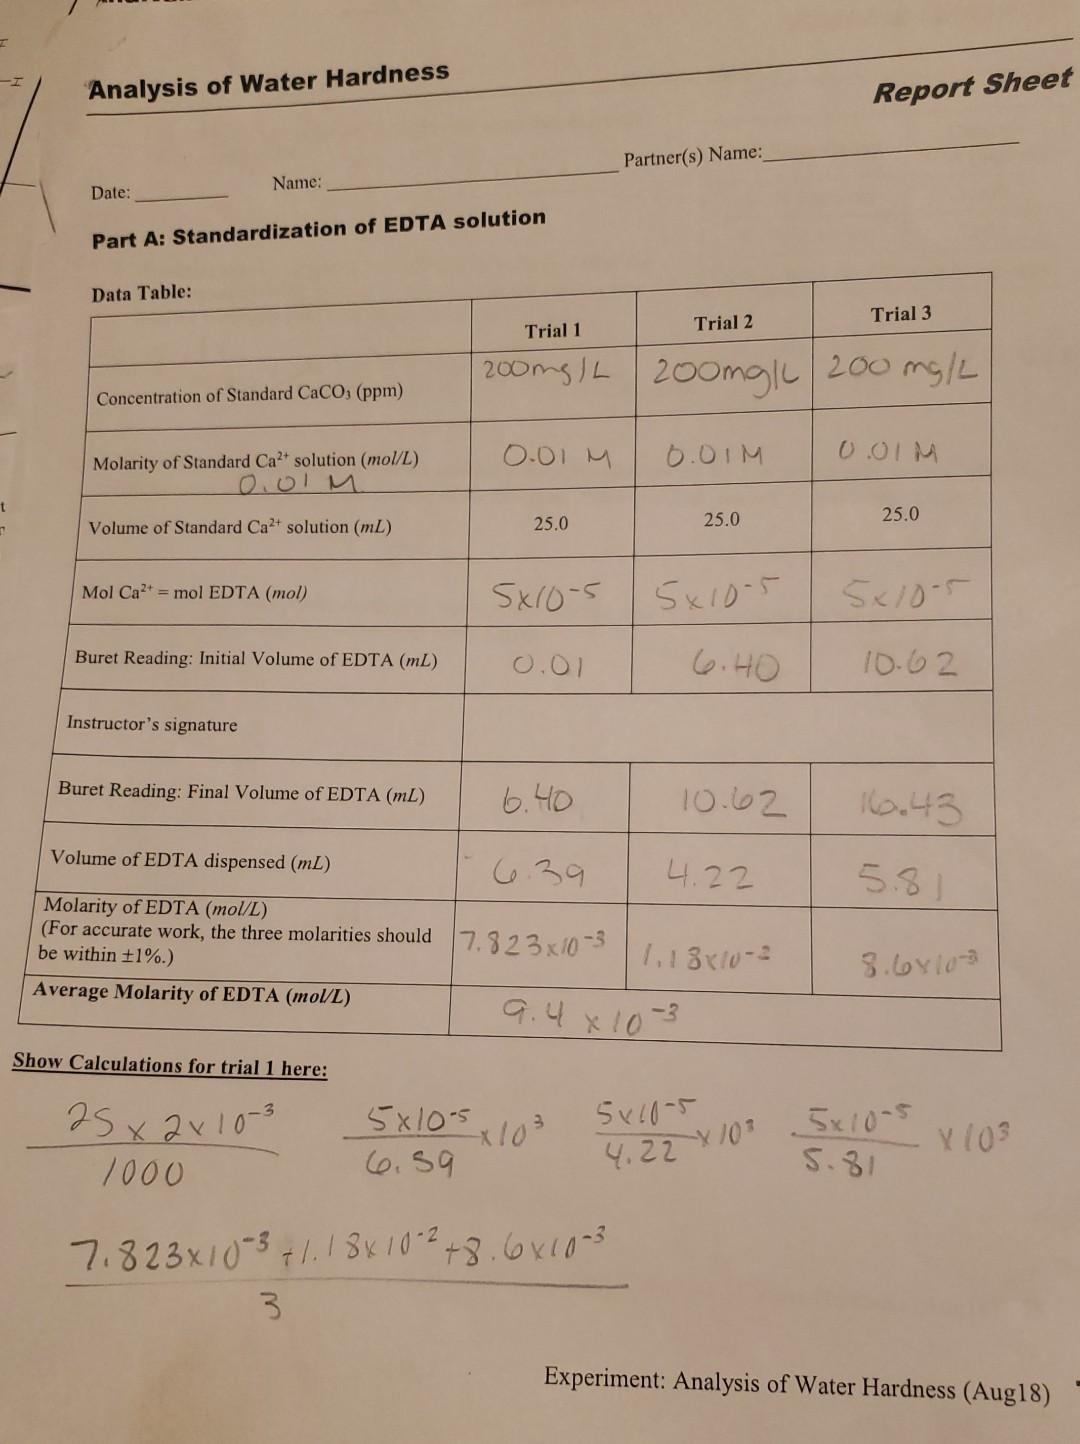 Analysis of Water Hardness
Report Sheet
Date: Name: Partner(s) Name:
Part A: Standardization of EDTA solution
Data Table:
Trial 1 Trial 2 Trial 3
Concentration of Standard CaCO₃ (ppm) 200mg/L 200mg/L 200 mg/L
Molarity of Standard Ca²⁺ solution (mol/L) 0.01 M 0.01M 0.01 M
0.01 M
Volume of Standard Ca²⁺ solution (mL) 25.0 25.0 25.0
Mol Ca²⁺ = mol EDTA (mol) 5x10⁻⁵ 5x10⁻⁵ 5x10⁻⁵
Buret Reading: Initial Volume of EDTA (mL) 0.01 6.40 10.62
Instructor's signature
Buret Reading: Final Volume of EDTA (mL) 6.40 10.62 16.43
Volume of EDTA dispensed (mL) 6.39 4.22 5.81
Molarity of EDTA (mol/L)
(For accurate work, the three molarities should
be within ±1%.) 7.823x10⁻³ 1.18x10⁻² 8.6x10⁻³
Average Molarity of EDTA (mol/L) 9.4 x 10⁻³
Show Calculations for trial 1 here:
25 x 2x10⁻³ 5x10⁻⁵ x10³ 5x10⁻⁵ x10³ 5x10⁻⁵ x10³
1000 6.39 4.22 5.81
7.823x10⁻³ +1.18x10⁻² +8.6x10⁻³
3
Experiment: Analysis of Water Hardness (Aug18)